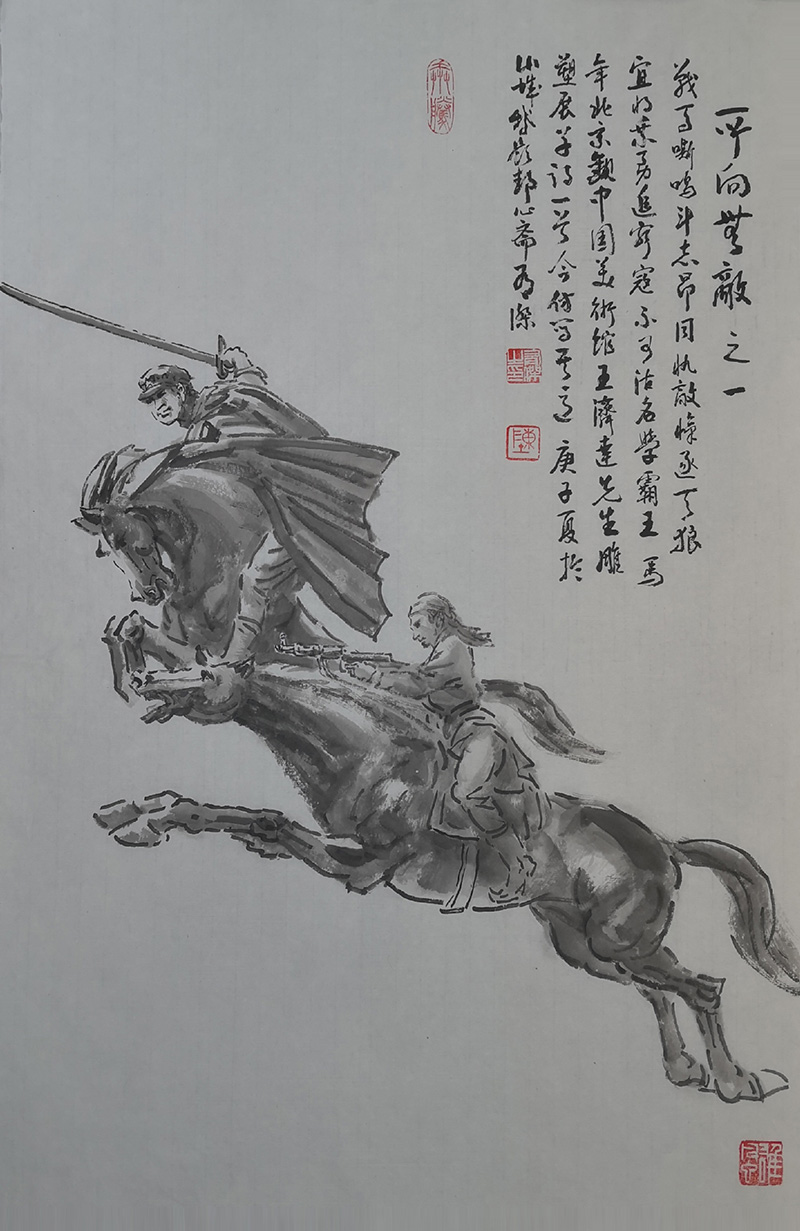 所向無敵之一
戰馬嘶鳴斗志昂同仇敵愾逐天狼
宜將乘勇追窮寇不可沽名學霸王馬
年北京觀中国美術館王濟達先生雕
塑展草詩一首今仿寫其意庚子夏於
小城
心齋